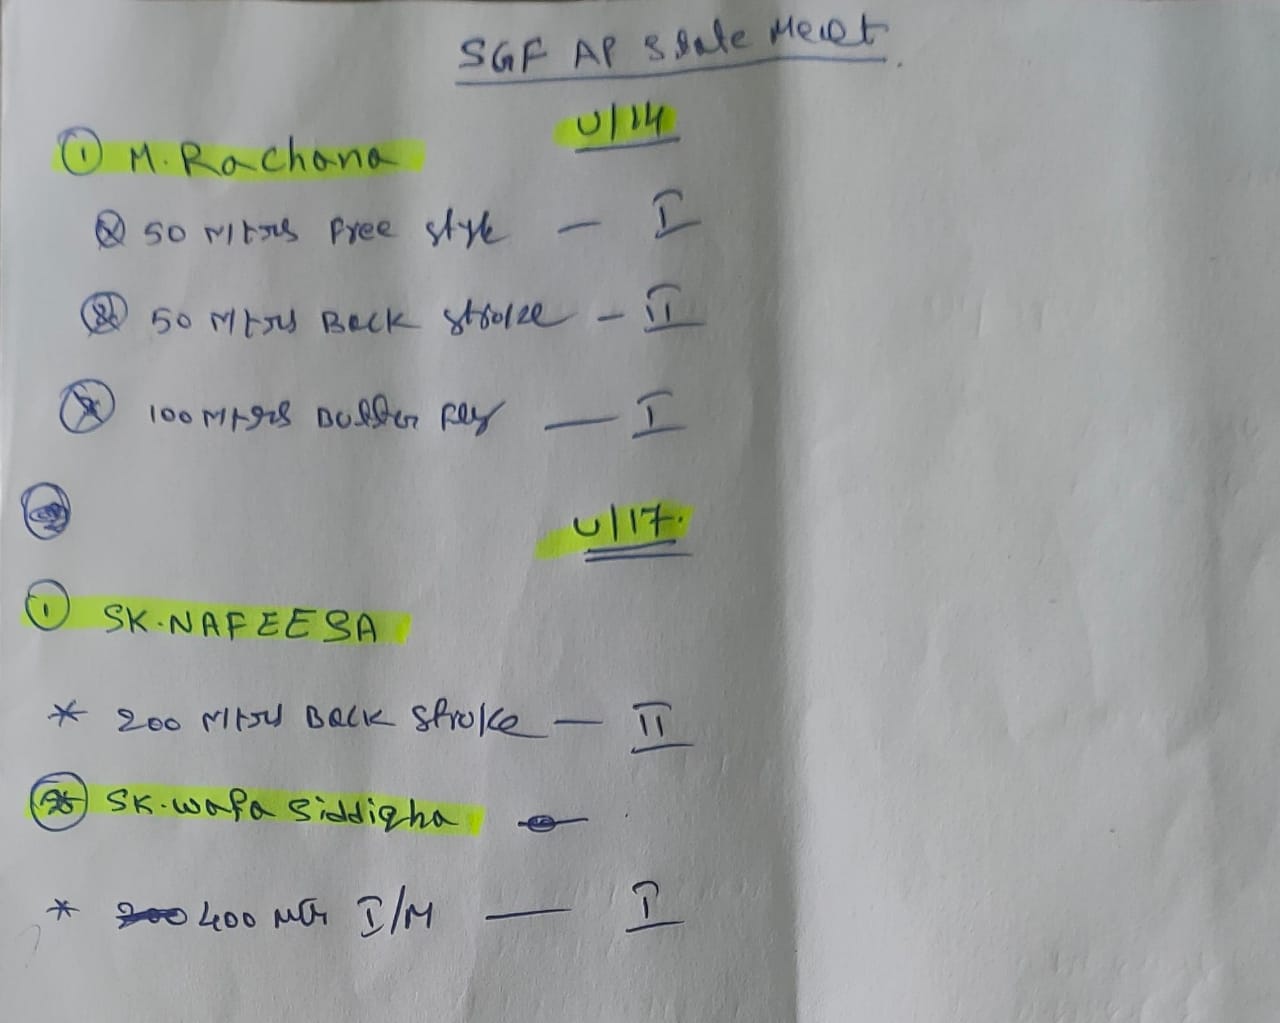 SGF AP State Meet
U/14
① M. Rachana
50 Mtrs Free style — I
50 Mtrs Back stroke — II
100 Mtrs Butter fly — I
U/17.
① SK. NAFEESA
* 200 Mtrs Back stroke — II
SK. Wafa Siddiqha —
* 400 Mtr I/M — I